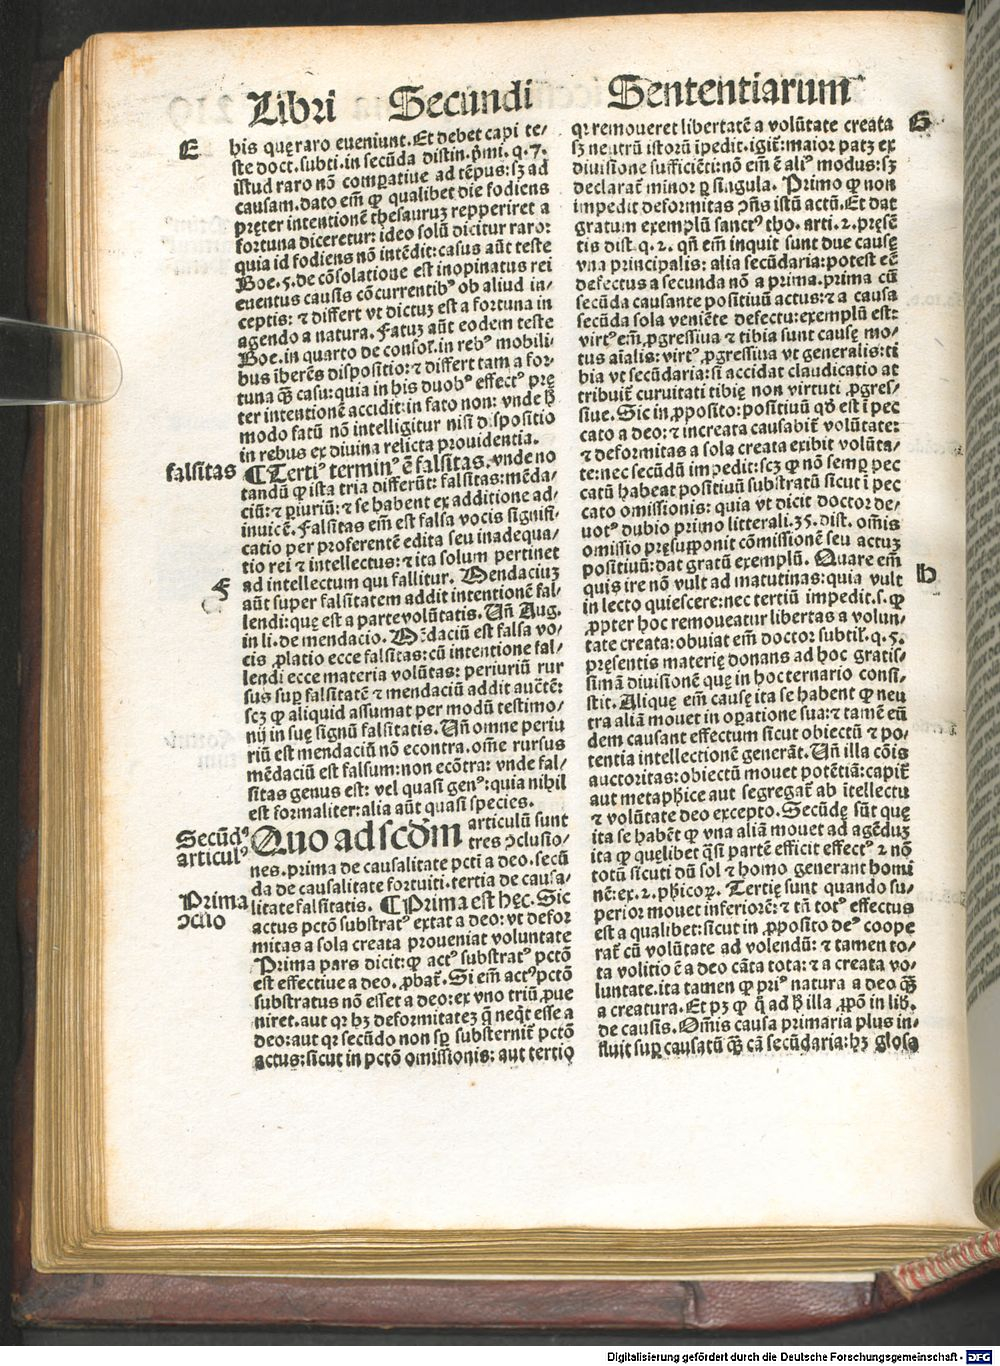 Libri Secundi Sententiarum
E
his quę raro eueniunt. Et debet capi te⸗
ste doct. subti. in secūda distin. pⁱmi. q. 7.
istud raro nō comꝑatiue ad tēpus: sꝫ ad
causam. dato em̄ ꝙ qualibet die fodiens
pręter intentionē thesauruꝫ repperiret a
fortuna diceretur: ideo solū dicitur raro:
quia id fodiens nō intēdit: casus aūt teste
Boe. 5. de cōsolatione est inopinatus rei
euentus causis cōcurrentibꝰ ob aliud in⸗
ceptis: ⁊ differt vt dictuꝫ est a fortuna in
agendo a natura. Fatuꝫ aūt eodem teste
Boe. in quarto de consol. in rebꝰ mobili⸗
bus īherēs dispositio: ⁊ differt tam a for⸗
tuna q̄ȝ casu: quia in his duobꝰ effectꝰ prę
ter intentionē accidit: in fato non: vnde ħ
modo fatū nō intelligitur nisi dispositio
in rebus ex diuina relicta prouidentia.
falsitas
¶ Tertiꝰ terminꝰ ē falsitas. vnde no
tandū ꝙ ista tria differūt: falsitas: mēda⸗
ciū: ⁊ ꝑiuriū: ⁊ se habent ex additione ad⸗
inuicē. Falsitas em̄ est falsa vocis signifi⸗
catio per proferentē edita seu inadequa⸗
tio rei ⁊ intellectus: ⁊ ita solum pertinet
F
ad intellectum qui fallitur. Mendaciuꝫ
aūt super falsitatem addit intentionē fal⸗
lendi: quę est a parte volūtatis. Vn̄ Aug.
in li. de mendacio. Mēdaciū est falsa vo⸗
cis ꝓlatio ecce falsitas: cū intentione fal⸗
lendi ecce materia volūtas: periuriū rur
sus suꝑ falsitatē ⁊ mendaciū addit auctē:
scꝫ ꝙ aliquid assumat per modū testimo⸗
nij in suę signū falsitatis. Vn̄ omne periu
riū est mendaciū nō econtra. om̄e rursus
mēdaciū est falsum: non ecōtra: vnde fal⸗
sitas genus est: vel quasi genꝰ: quia nihil
est formaliter: alia aūt quasi species.
Secūdꝰ
articulꝰ
Quo ad scd̄m articulū sunt
tres ↄclusio⸗
nes. prima de causalitate pcti a deo. secū
da de causalitate fortuiti. tertia de causa⸗
Prima
ↄclio
litate falsitatis. ¶ Prima est hęc. Sic
actus pctō substratꝰ extat a deo: vt defor
mitas a sola creata proueniat voluntate
Prima pars dicit: ꝙ actꝰ substratꝰ pctō
est effectiue a deo. ꝓbat̄. Si em̄ actꝰ pctō
substratus nō esset a deo: ex vno triū ꝓue
niret. aut qꝛ hꝫ deformitateꝫ q̄ neq̇t esse a
deo: aut qꝛ secūdo non sꝑ substernit̄ pctō
actus: sicut in pctō omissionis: aut tertio
G
qꝛ remoueret libertatē a volūtate creata
sꝫ neutrū istorū īpedit. igit̄: maior patꝫ ex
diuisione sufficiēti: nō em̄ ē aliꝰ modus: sꝫ
declarat̄ minor ꝑ singula. Primo ꝙ non
impedit deformitas ↄn̄s istū actū. Et dat
gratum exemplū sanctꝰ tho. arti. 2. pręsē
tis dist. q. 2. qn̄ em̄ inquit sunt due causę
vna principalis: alia secūdaria: potest eē
defectus a secunda nō a prima. prima cū
secūda causante positiuū actus: ⁊ a causa
secūda sola veniēte defectu: exemplū est:
virtꝰ em̄ ꝓgressiua ⁊ tibia sunt causę mo⸗
tus aīalis: virtꝰ ꝓgressiua vt generalis: ti
bia vt secūdaria: si accidat claudicatio at
tribuit̄ curuitati tibię non virtuti ꝓgres⸗
siue. Sic in ꝓposito: positiuū qd̄ est ī pec
cato a deo: ⁊ increata causabit̄ volūtate:
⁊ deformitas a sola creata exibit volūta⸗
te: nec secūdū impedit: scꝫ ꝙ nō semꝑ pec
catū habeat positiuū substratū sicut ī pec
cato omissionis: quia vt dicit doctor de⸗
uotꝰ dubio primo litterali. 35. dist. om̄is
omissio pręsupponit cōmissionē seu actuꝫ
positiuū: dat gratū exemplū. Quare em̄
H
quis ire nō vult ad matutinas: quia vult
in lecto quiescere: nec tertiū impedit. s. ꝙ
ꝓpter hoc remoueatur libertas a volun⸗
tate creata: obuiat em̄ doctor subtil. q. 5.
pręsentis materię donans ad hoc gratis⸗
simā diuisionē quę in hoc ternario consi⸗
stit. Alique em̄ causę ita se habent ꝙ neu
tra aliā mouet in oꝑatione sua: ⁊ tamē eū
dem causant effectum sicut obiectū ⁊ po⸗
tentia intellectionē generāt. Vn̄ illa cōis
auctoritas: obiectū mouet potētiā: capit̄
aut metaphice aut segregat̄ ab ītellectu
⁊ volūtate deo excepto. Secūdę sūt quę
ita se habēt ꝙ vna aliā mouet ad agēduꝫ
ita ꝙ quęlibet q̄si partē efficit effectꝰ ⁊ nō
totū sicuti dū sol ⁊ homo generant homi
nē: ex. 2. phicoꝝ. Tertię sunt quando su⸗
perior mouet inferiorē: ⁊ tn̄ totꝰ effectus
est a qualibet: sicut in ꝓposito deꝰ coope
rat̄ cū volūtate ad volendū: ⁊ tamen to⸗
ta volitio ē a deo cāta tota: ⁊ a creata vo⸗
luntate. ita tamen ꝙ priꝰ natura a deo q̄ȝ
a creatura. Et pꝫ ꝙ q̄ ad ħ illa ꝓpō in lib.
de causis. Om̄is causa primaria plus in⸗
fluit suꝑ causatū q̄ȝ cā secūdaria: hꝫ glosa
Digitalisierung gefördert durch die Deutsche Forschungsgemeinschaft - DFG